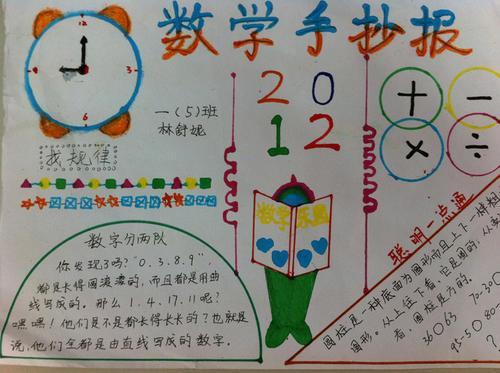 数学手抄报
12
3
6
9
一(5)班
林舒妮
找规律
20
12
+
−
×
÷
数学乐园
数字分两队
你发现了吗？"0.3.8.9."
都是长得圆滚滚的，而且都是用曲
线写成的。那么1.4.17.11呢？
嘿嘿！他们是不是都长得长长的？也就是
说，他们全都是由直线写成的数字。
聪明一点通
圆柱是一种底面为圆形而且上下一样粗
图形。从上往下看，它是圆的，从
看，圆柱是方的。
36○63
70-30○
95-5○80-
?